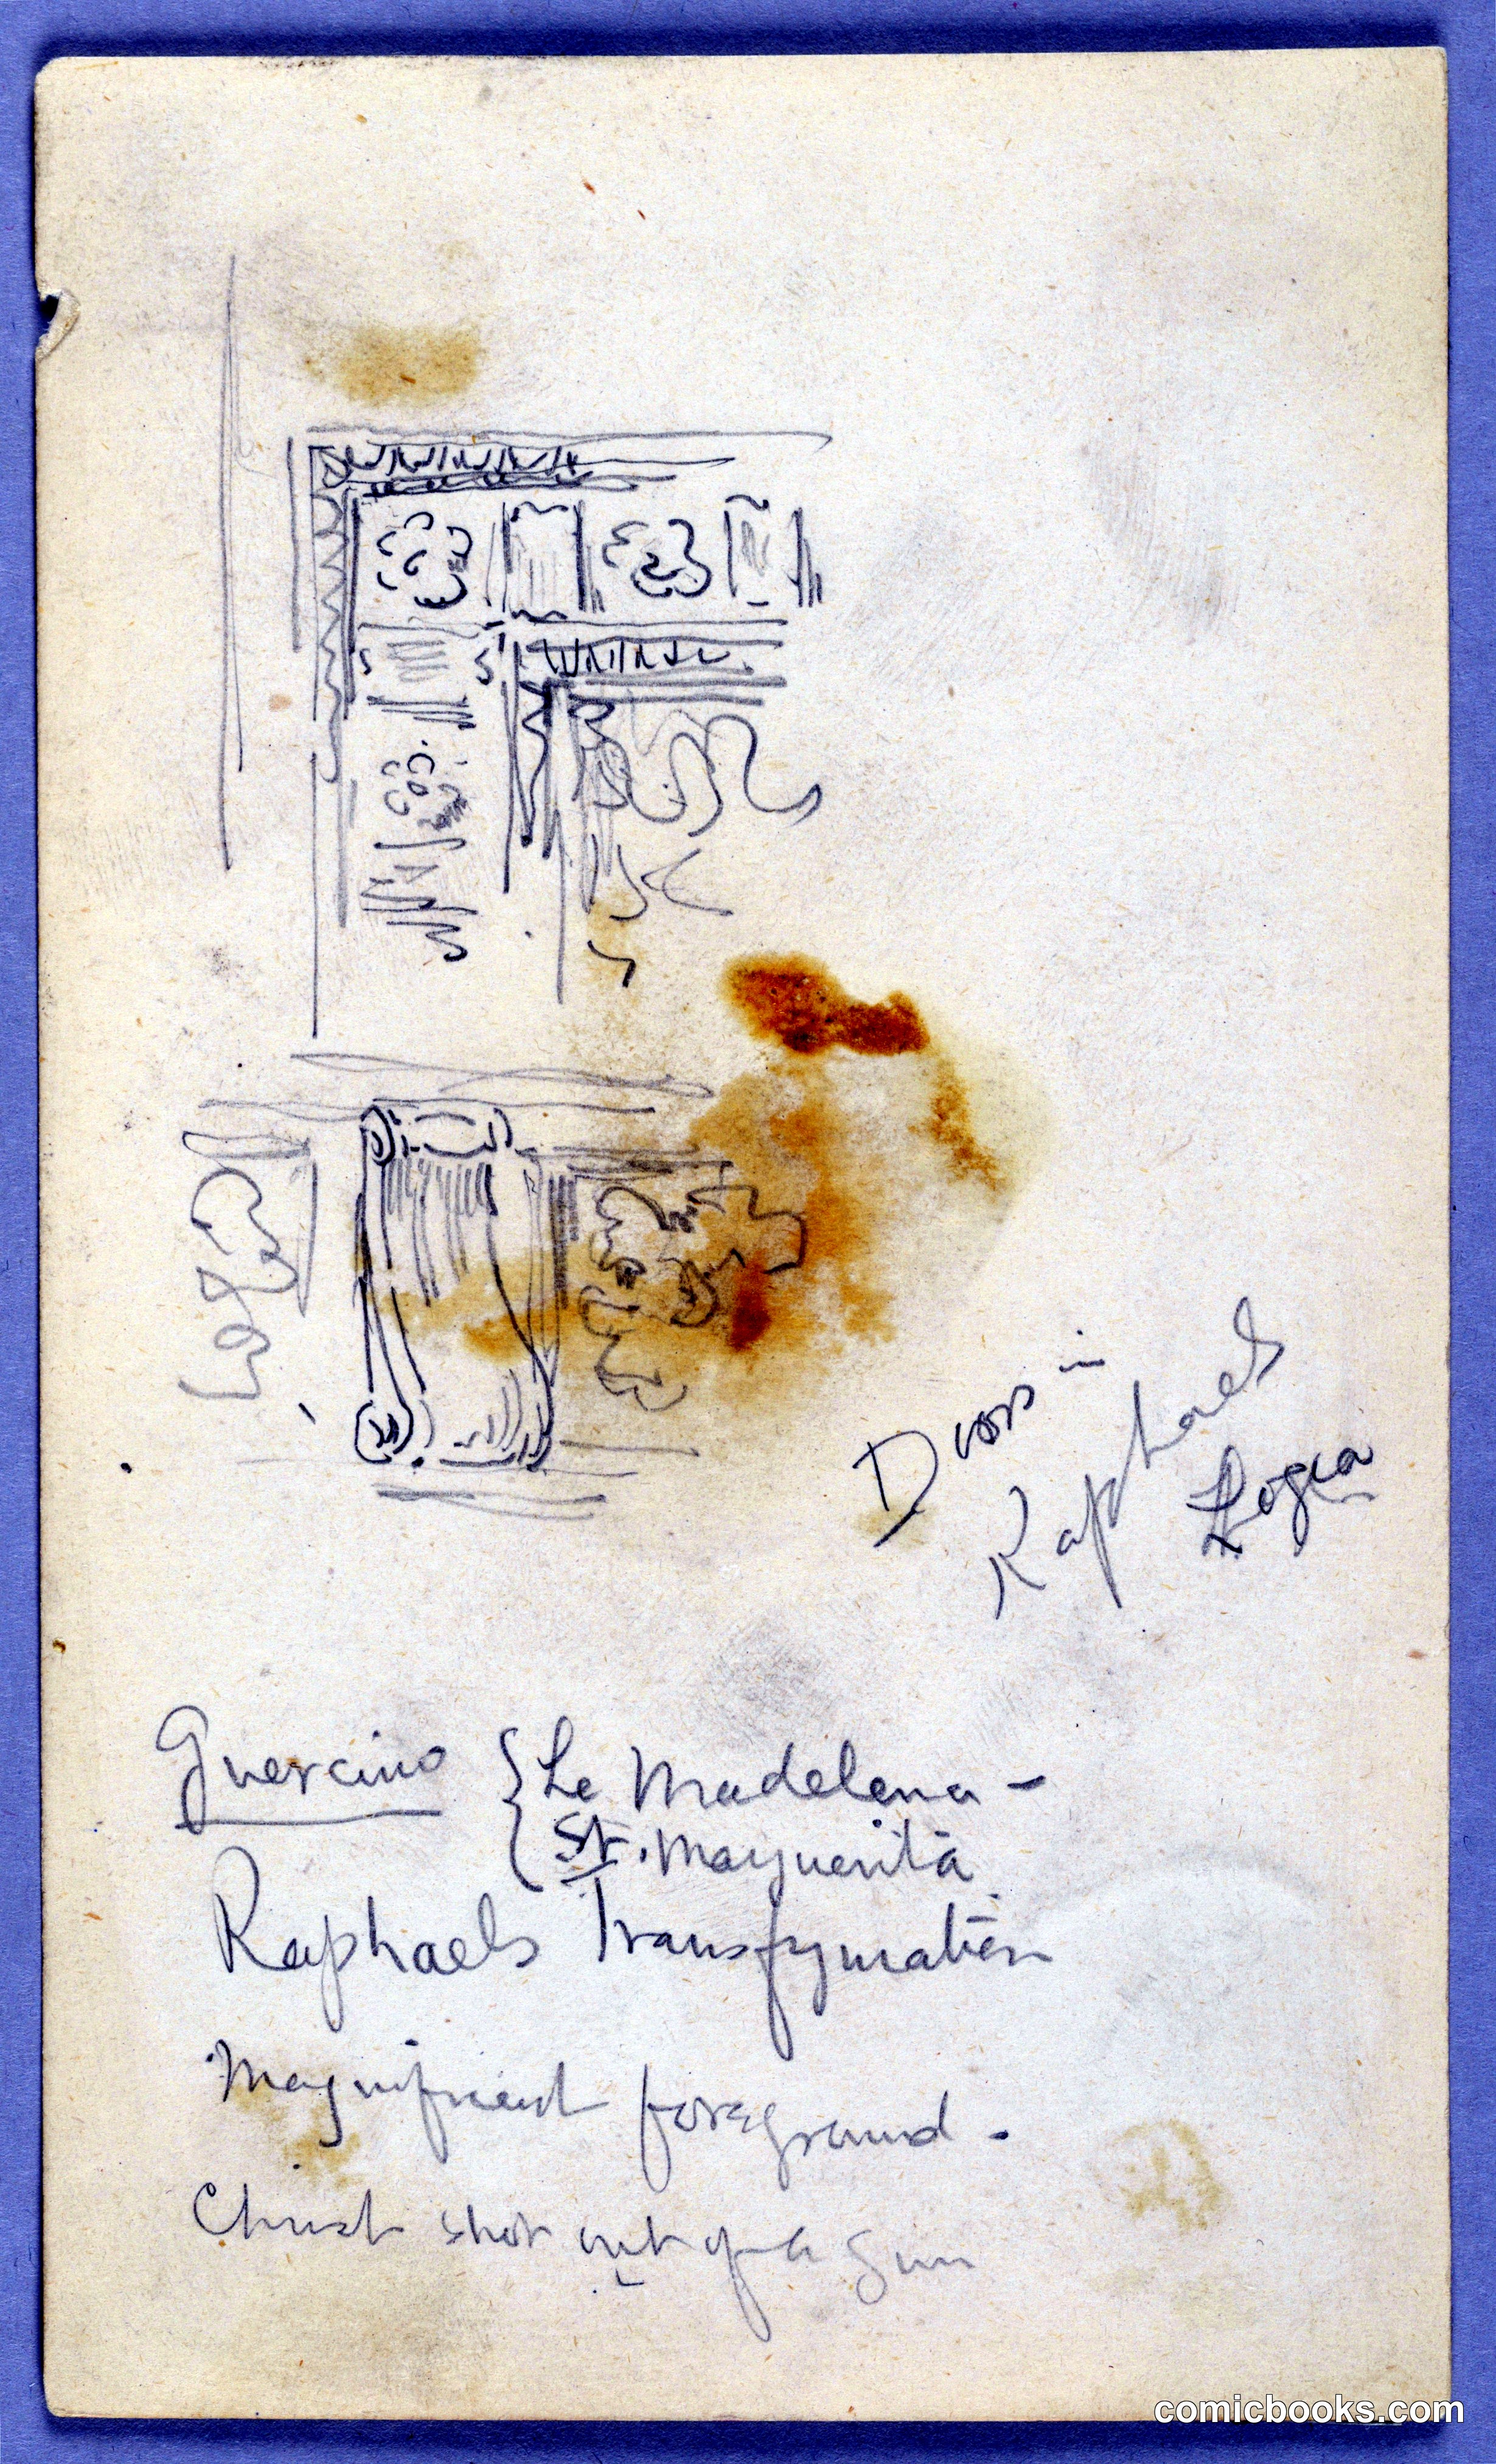 Doors in
Raphaels
Logia
Guercino { Le Madelena -
St. Marguerita
Raphaels Transfiguration
Magnificent foreground -
Christ shot out of a gun
comicbooks.com